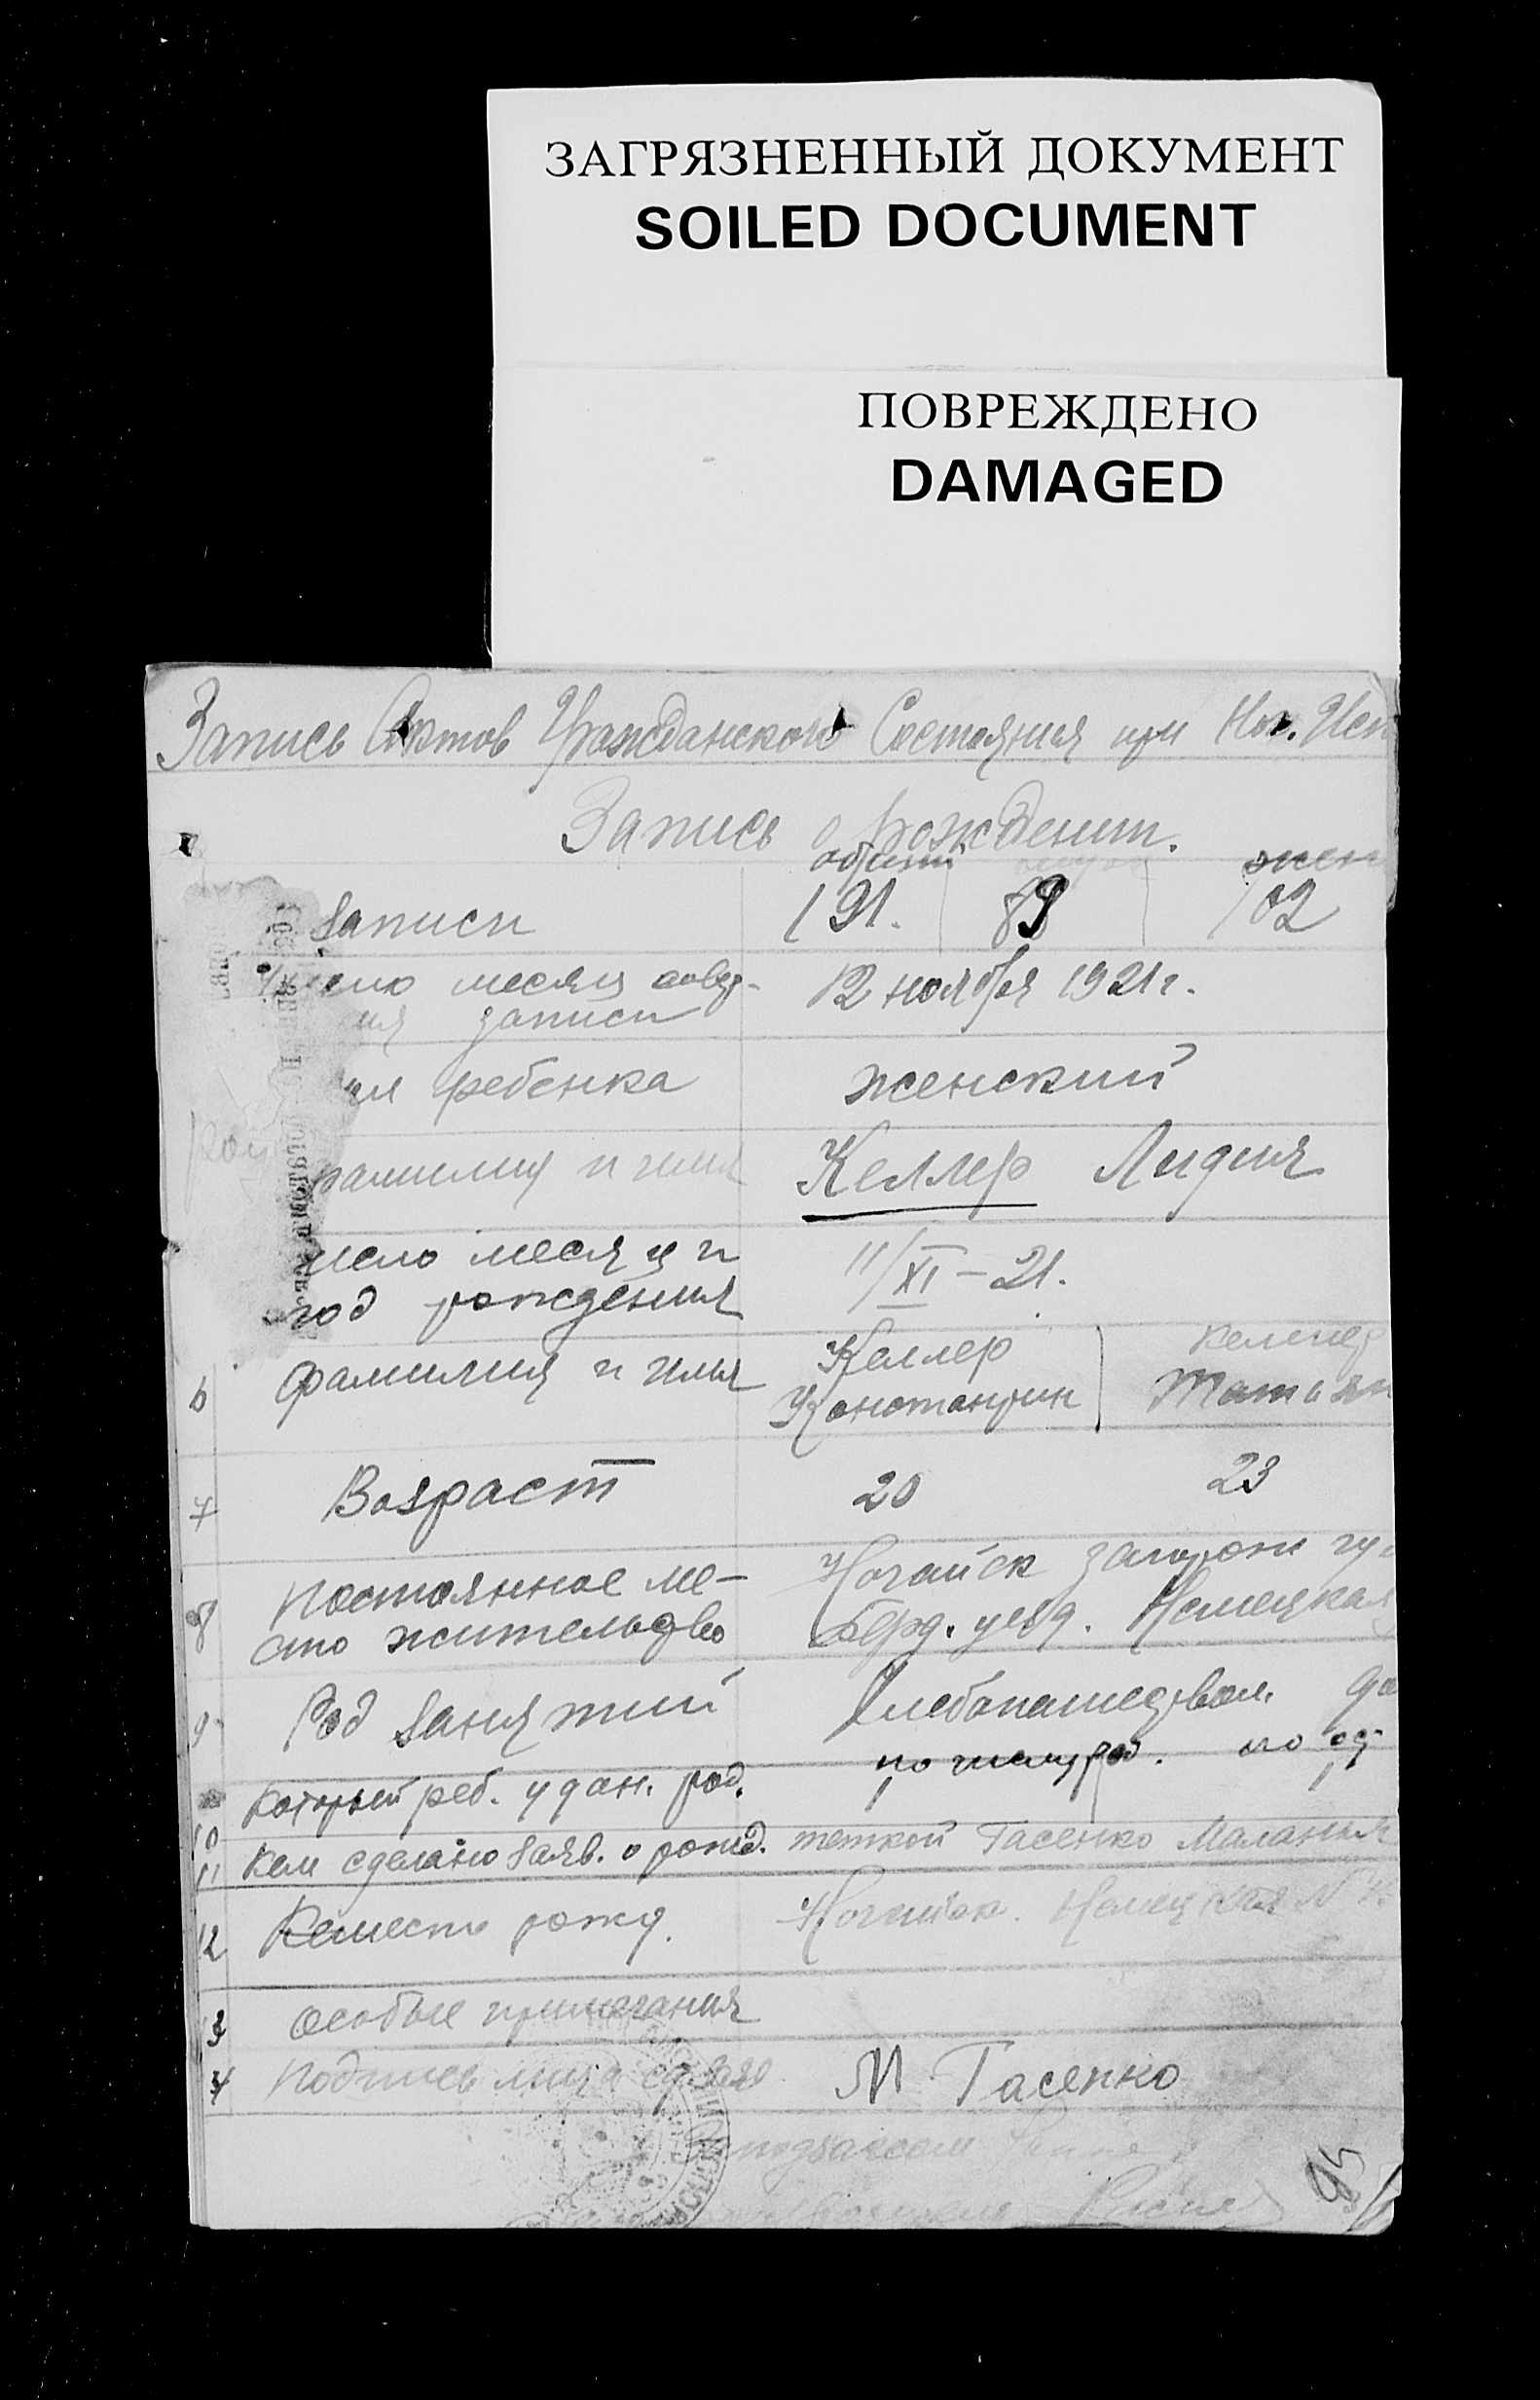 ЗАГРЯЗНЕННЫЙ ДОКУМЕНТ
SOILED DOCUMENT
ПОВРЕЖДЕНО
DAMAGED
Запись Актов Гражданского Состояния при Ног. Исп
Запись о рождении.
общий жен
записи 191. 89 102
месяц совер-
ия записи 12 ноября 1921 г.
ребенка женский
фамилия и имя Келлер Лидия
исло месяц и
год рождения 11/XI – 21.
6 фамилия и имя Келлер Келлер
Константин Татьян
7 Возраст 20 23
8 постоянное ме- Ногайск запорож гу
сто жительство Берд. уезд. Немецкая
9 Род занятий Хлебопашедвом. до
10 который реб. у дан. род. по числу род. по од
11 Кем сделано заяв. о рожд. теткой Гасенко Малания
12 место рожд. Ногайск. Немецкая N
13 особые примечания
14 подпись лица сд. заяв М Гасенко
95